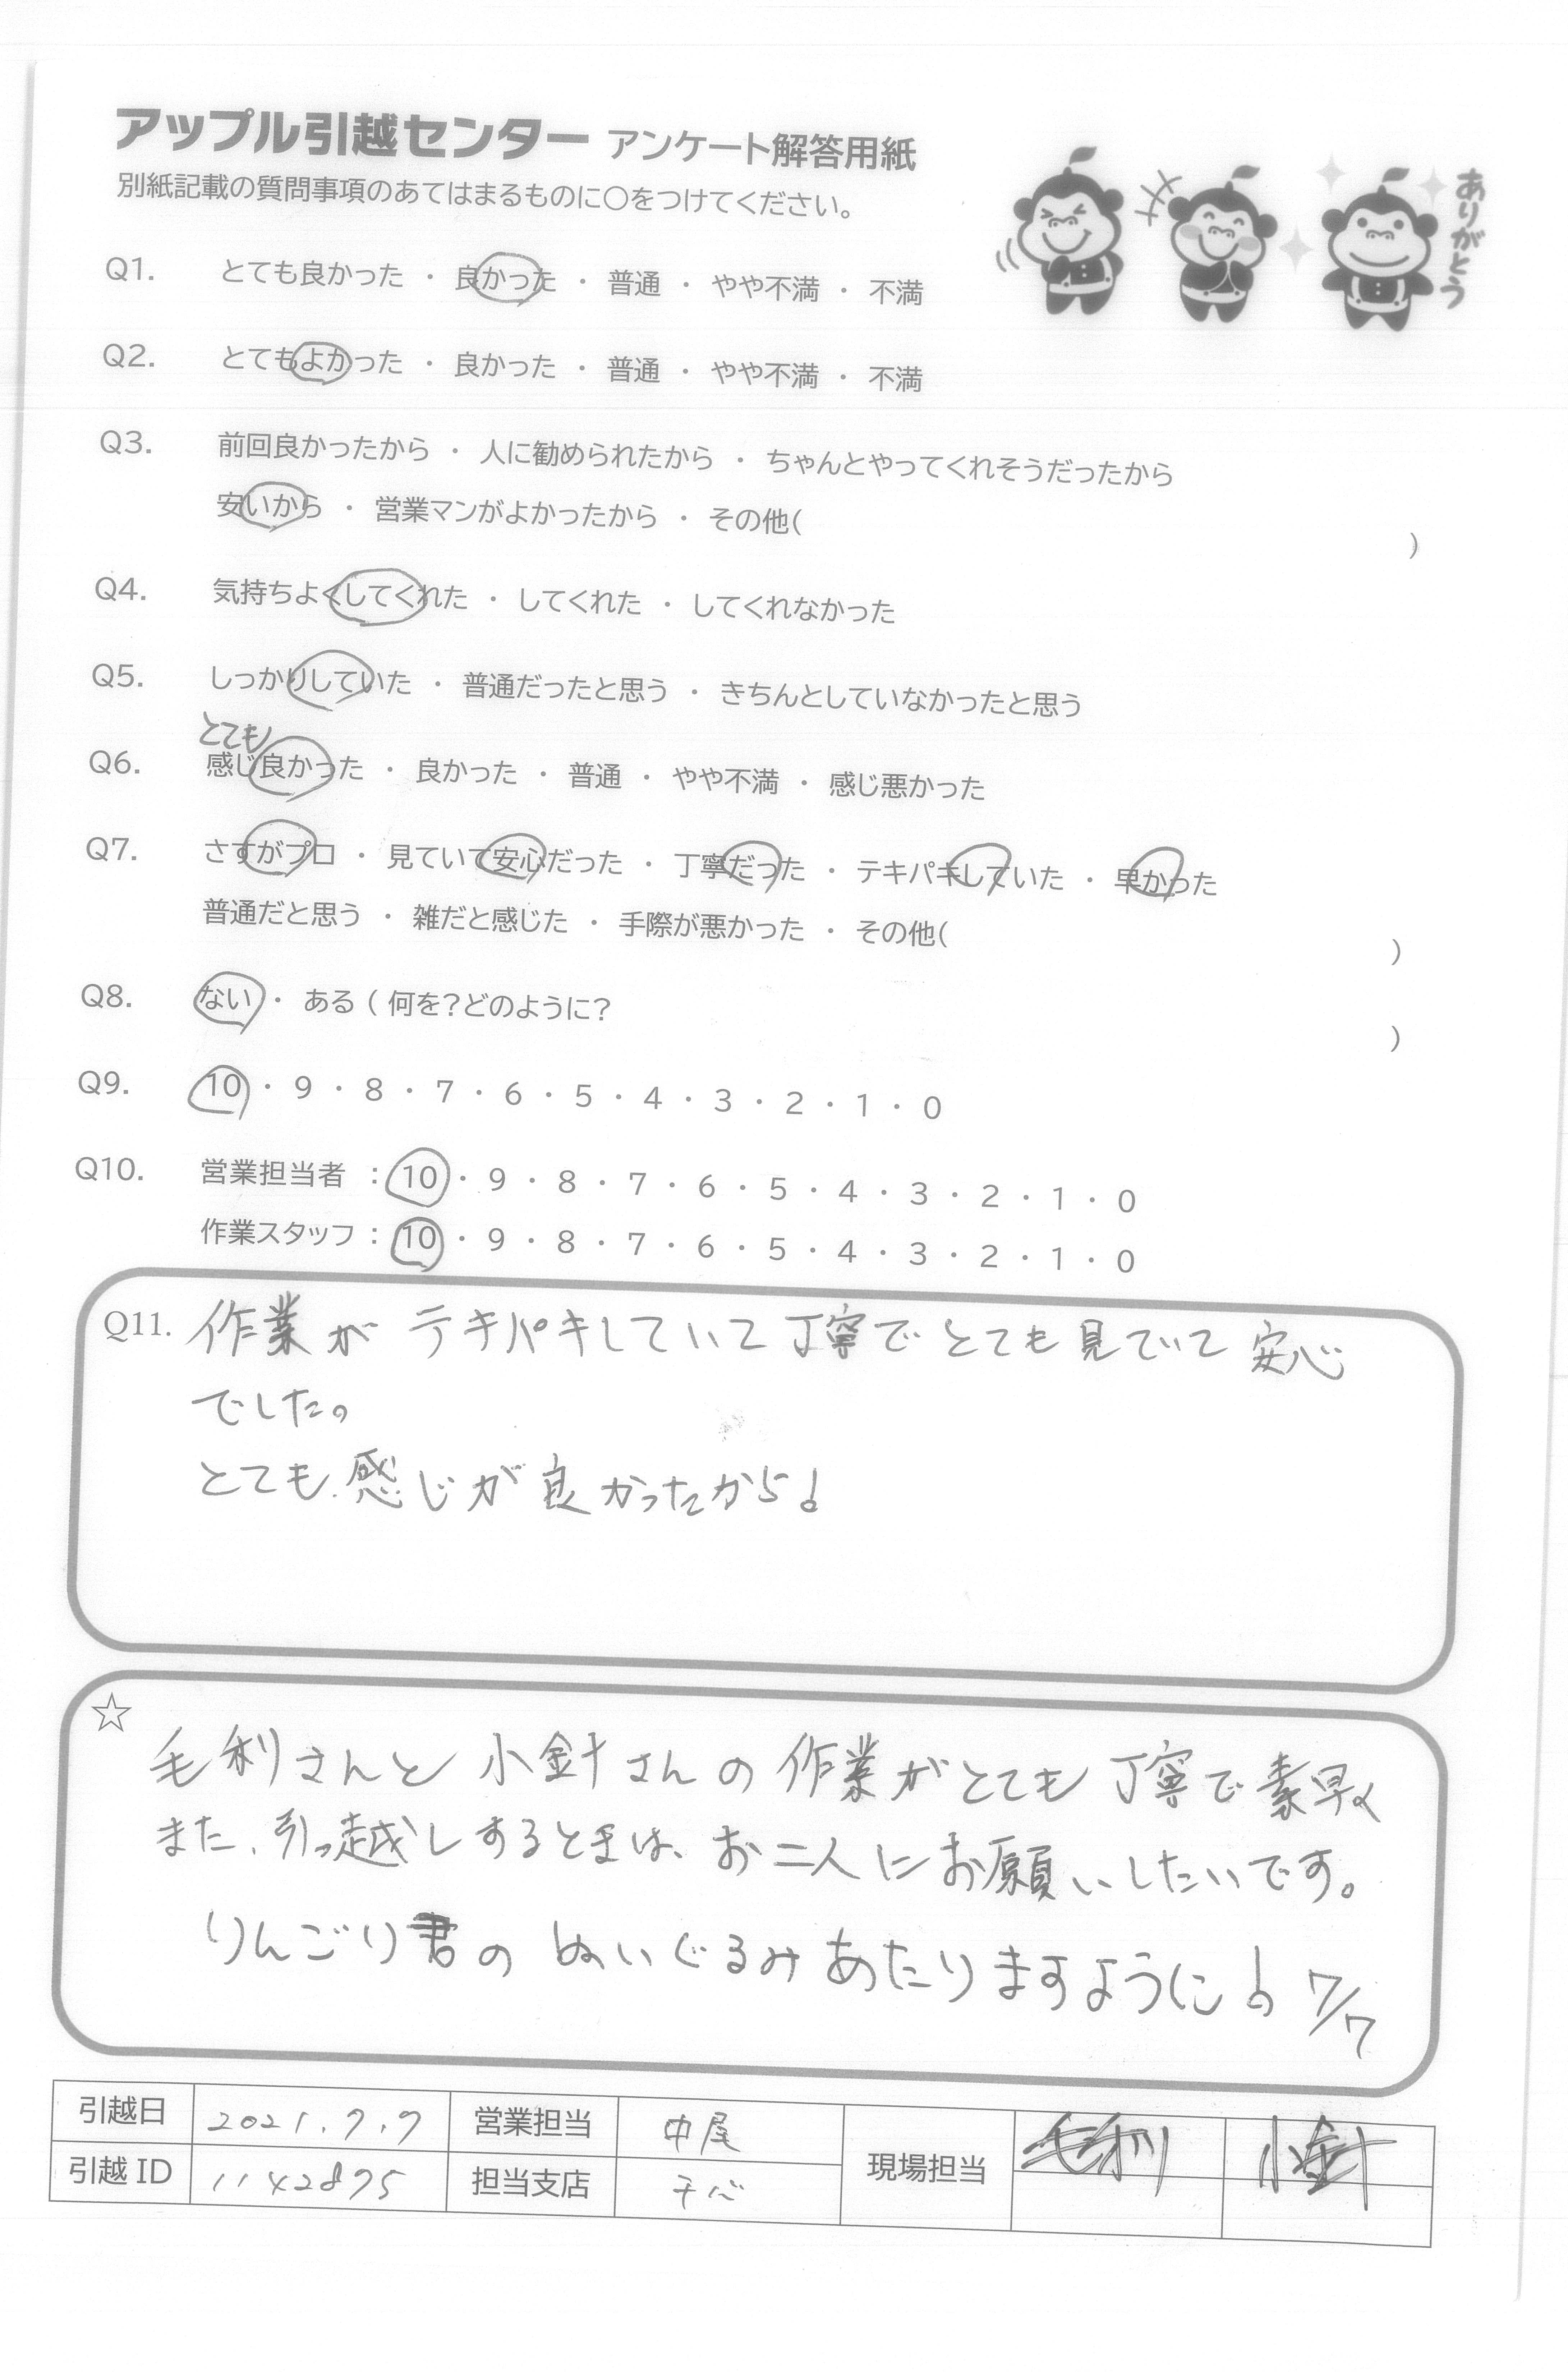 アップル引越センター アンケート解答用紙
別紙記載の質問事項のあてはまるものに○をつけてください。
ありがとう
Q1. とても良かった ・ 良かった ・ 普通 ・ やや不満 ・ 不満
Q2. とてもよかった ・ 良かった ・ 普通 ・ やや不満 ・ 不満
Q3. 前回良かったから ・ 人に勧められたから ・ ちゃんとやってくれそうだったから
安いから ・ 営業マンがよかったから ・ その他( )
Q4. 気持ちよくしてくれた ・ してくれた ・ してくれなかった
Q5. しっかりしていた ・ 普通だったと思う ・ きちんとしていなかったと思う
とても
Q6. 感じ良かった ・ 良かった ・ 普通 ・ やや不満 ・ 感じ悪かった
Q7. さすがプロ ・ 見ていて安心だった ・ 丁寧だった ・ テキパキしていた ・ 早かった
普通だと思う ・ 雑だと感じた ・ 手際が悪かった ・ その他( )
Q8. ない ・ ある ( 何を?どのように? )
Q9. 10 ・ 9 ・ 8 ・ 7 ・ 6 ・ 5 ・ 4 ・ 3 ・ 2 ・ 1 ・ 0
Q10. 営業担当者 : 10 ・ 9 ・ 8 ・ 7 ・ 6 ・ 5 ・ 4 ・ 3 ・ 2 ・ 1 ・ 0
作業スタッフ : 10 ・ 9 ・ 8 ・ 7 ・ 6 ・ 5 ・ 4 ・ 3 ・ 2 ・ 1 ・ 0
Q11. 作業がテキパキしていて丁寧でとても見ていて安心
でした。
とても感じが良かったから!
☆
毛利さんと小針さんの作業がとても丁寧で素早く
また、引っ越しするときは、お二人にお願いしたいです。
りんごり君のぬいぐるみあたりますように! 7/7
引越日 2021.7.7 営業担当 中尾 現場担当 毛利 小針
引越ID 1142875 担当支店 千心